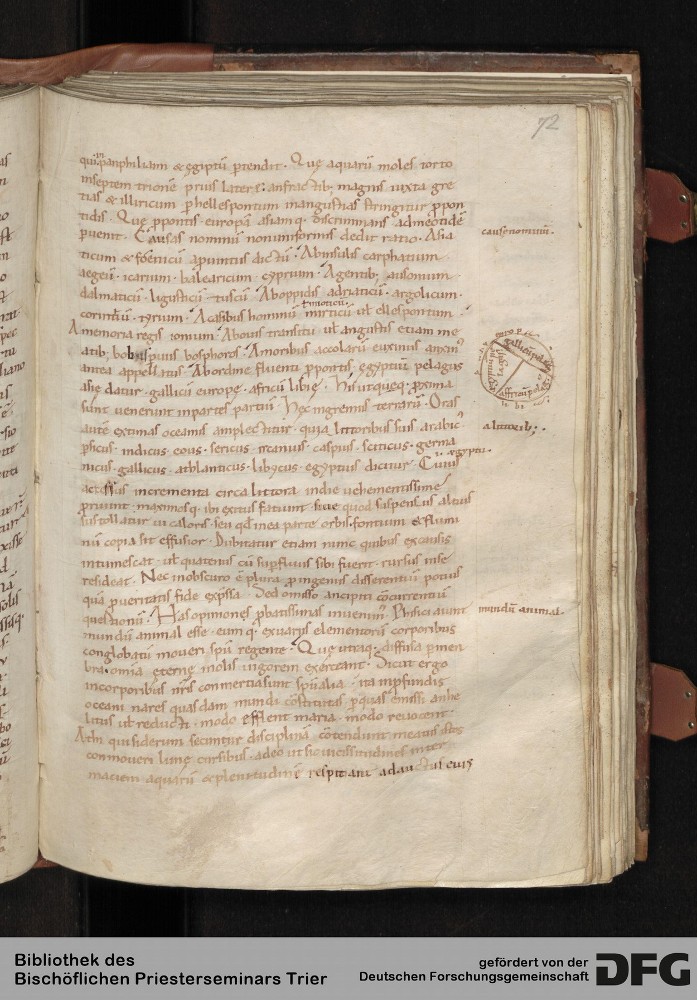 72
qui panphiliam & egiptū p̄tendit · Quę aquarū moles torto
inseptem trione prius latere anfractib; magnis iuxta gre
tias & illiricum phellespontum inangustias stringitur ppon
tidis · Quę ppontis europā asiamq · discriminans admeotidē
puenit · Causas nominū nonuniformis dedit ratio · Asia
causenominum.
ticum & foenicū apuintiis dictū · Abinsulis carphatium
aegeū · icarium · balearicum · cyprium · Agentib; ausonium
dalmaticū · ligusticū · tuscū · Aboppidis adriaticū · argolicum ·
corintiū · tyrium · Acasibus hominū mirticū ut ellespontum ·
Amemoria regis ionium · Abouis transitu ut angustis etiam me
atib; bobus puus bosphoros · Amoribus accolarū euxinus
antea appellatus · Abordine fluenti ppontis egyptiū pelagus
asię datur · gallicū europę · africū libię · Hisutqueq; pxima
sunt uenerunt inpartes partiū · Hęc ingremiis terrarū · Oras
autē extimas oceanus amplectitur · qui a littoribus suis arabic'
a littorib;
psicus · indicus · eous · sericus · ircanus · caspius · sciticus · germa
nicus · gallicus · athlanticus · libycus · egyptius dicitur · Cuius
accessus incrementa circa littora indie uehementissime
pruunt · maximosq · ibi exitus faciunt · siue quod suspensus altius
sustollatur ui caloris · seu qd inea parte orbis fontium & flumi
nū copia sit effusior · Dubitatur etiam nunc quibus excausis
intumescat · ut quatenus cū supfluus sibi fuerit · rursus inse
resideat · Nec inobscuro ē plura pingeniis disserentiū potius
quā pueritatis fide expssa · Sed omisso ancipiti concitentiū
questionū · Has opiniones pbatissimas inuenim' · Phisici aiunt
mundū animal.
mundū animal esse · eumq · exuariis elementorū corporibus
conglobatū moueri spū regente · Quę utraq; diffusa p men
bra omnia eternę molis uigorem exerceant · Sicut ergo
incorporibus nris conmertia sunt spūalia · ita inpfundis
oceani nares quasdam mundi cōstitutas · p quas emissi anhe
litus ut reducti · modo efflent maria · modo reuocent ·
Athi quisiderum secuntur disciplinā · cōtendunt meatus istos
conmoueri lunę cursibus · adeo ut sic uicissitudines inter
maciem aquarū & plenitudinē respiciant adauctus eius
Bibliothek des
Bischöflichen Priesterseminars Trier
gefördert von der
Deutschen Forschungsgemeinschaft
DFG